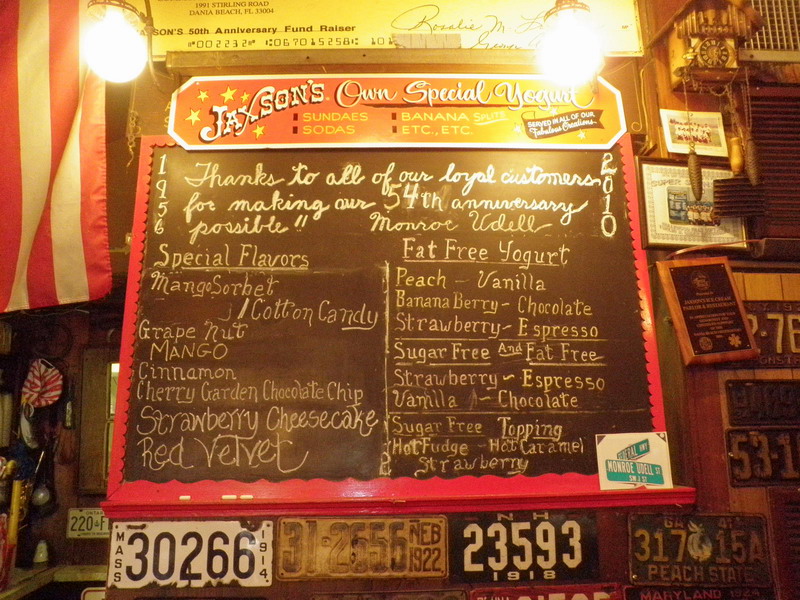 1991 STIRLING ROAD
DANIA BEACH, FL 33004
SON'S 50th Anniversary Fund Raiser
Rosalie M
JAXSON'S Own Special Yogurt
SUNDAES
BANANA SPLITS
SODAS
ETC., ETC.
SERVED IN ALL OF OUR
Fabulous Creations
1956
2010
Thanks to all of our loyal customers
for making our 54th anniversary
possible!! Monroe Udell
Special Flavors
Mango Sorbet
Cotton Candy
Grape Nut
MANGO
Cinnamon
Cherry Garden Chocolate Chip
Strawberry Cheesecake
Red Velvet
Fat Free Yogurt
Peach - Vanilla
Banana Berry - Chocolate
Strawberry - Espresso
Sugar Free And Fat Free
Strawberry - Espresso
Vanilla - Chocolate
Sugar Free Topping
Hot Fudge - Hot Caramel
Strawberry
FEDERAL HWY
MONROE UDELL ST
SW 1 ST
SUPER
53-1
220
MASS 30266 1914
31-2656 NEB 1922
NH
23593
1918
GA 41
317 15A
PEACH STATE
MARYLAND